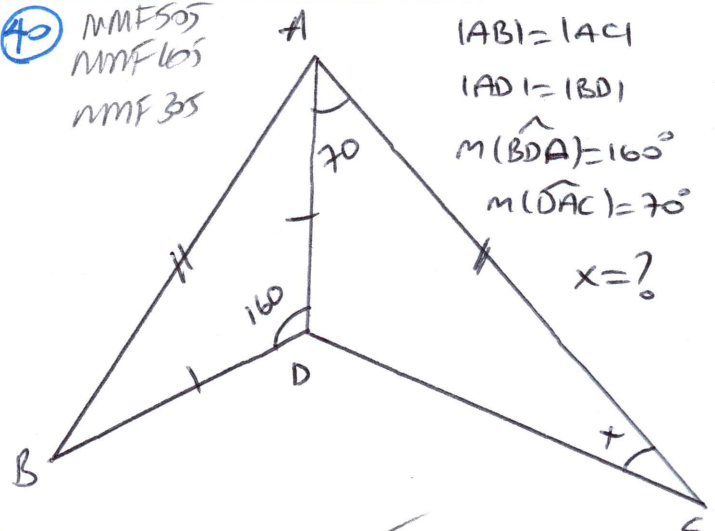 40
MMF505
MMF405
MMF305
A
|AB|=|AC|
|AD|=|BD|
m(BDA)=160°
m(DAC)=70°
x=?
70
160
D
x
B
C